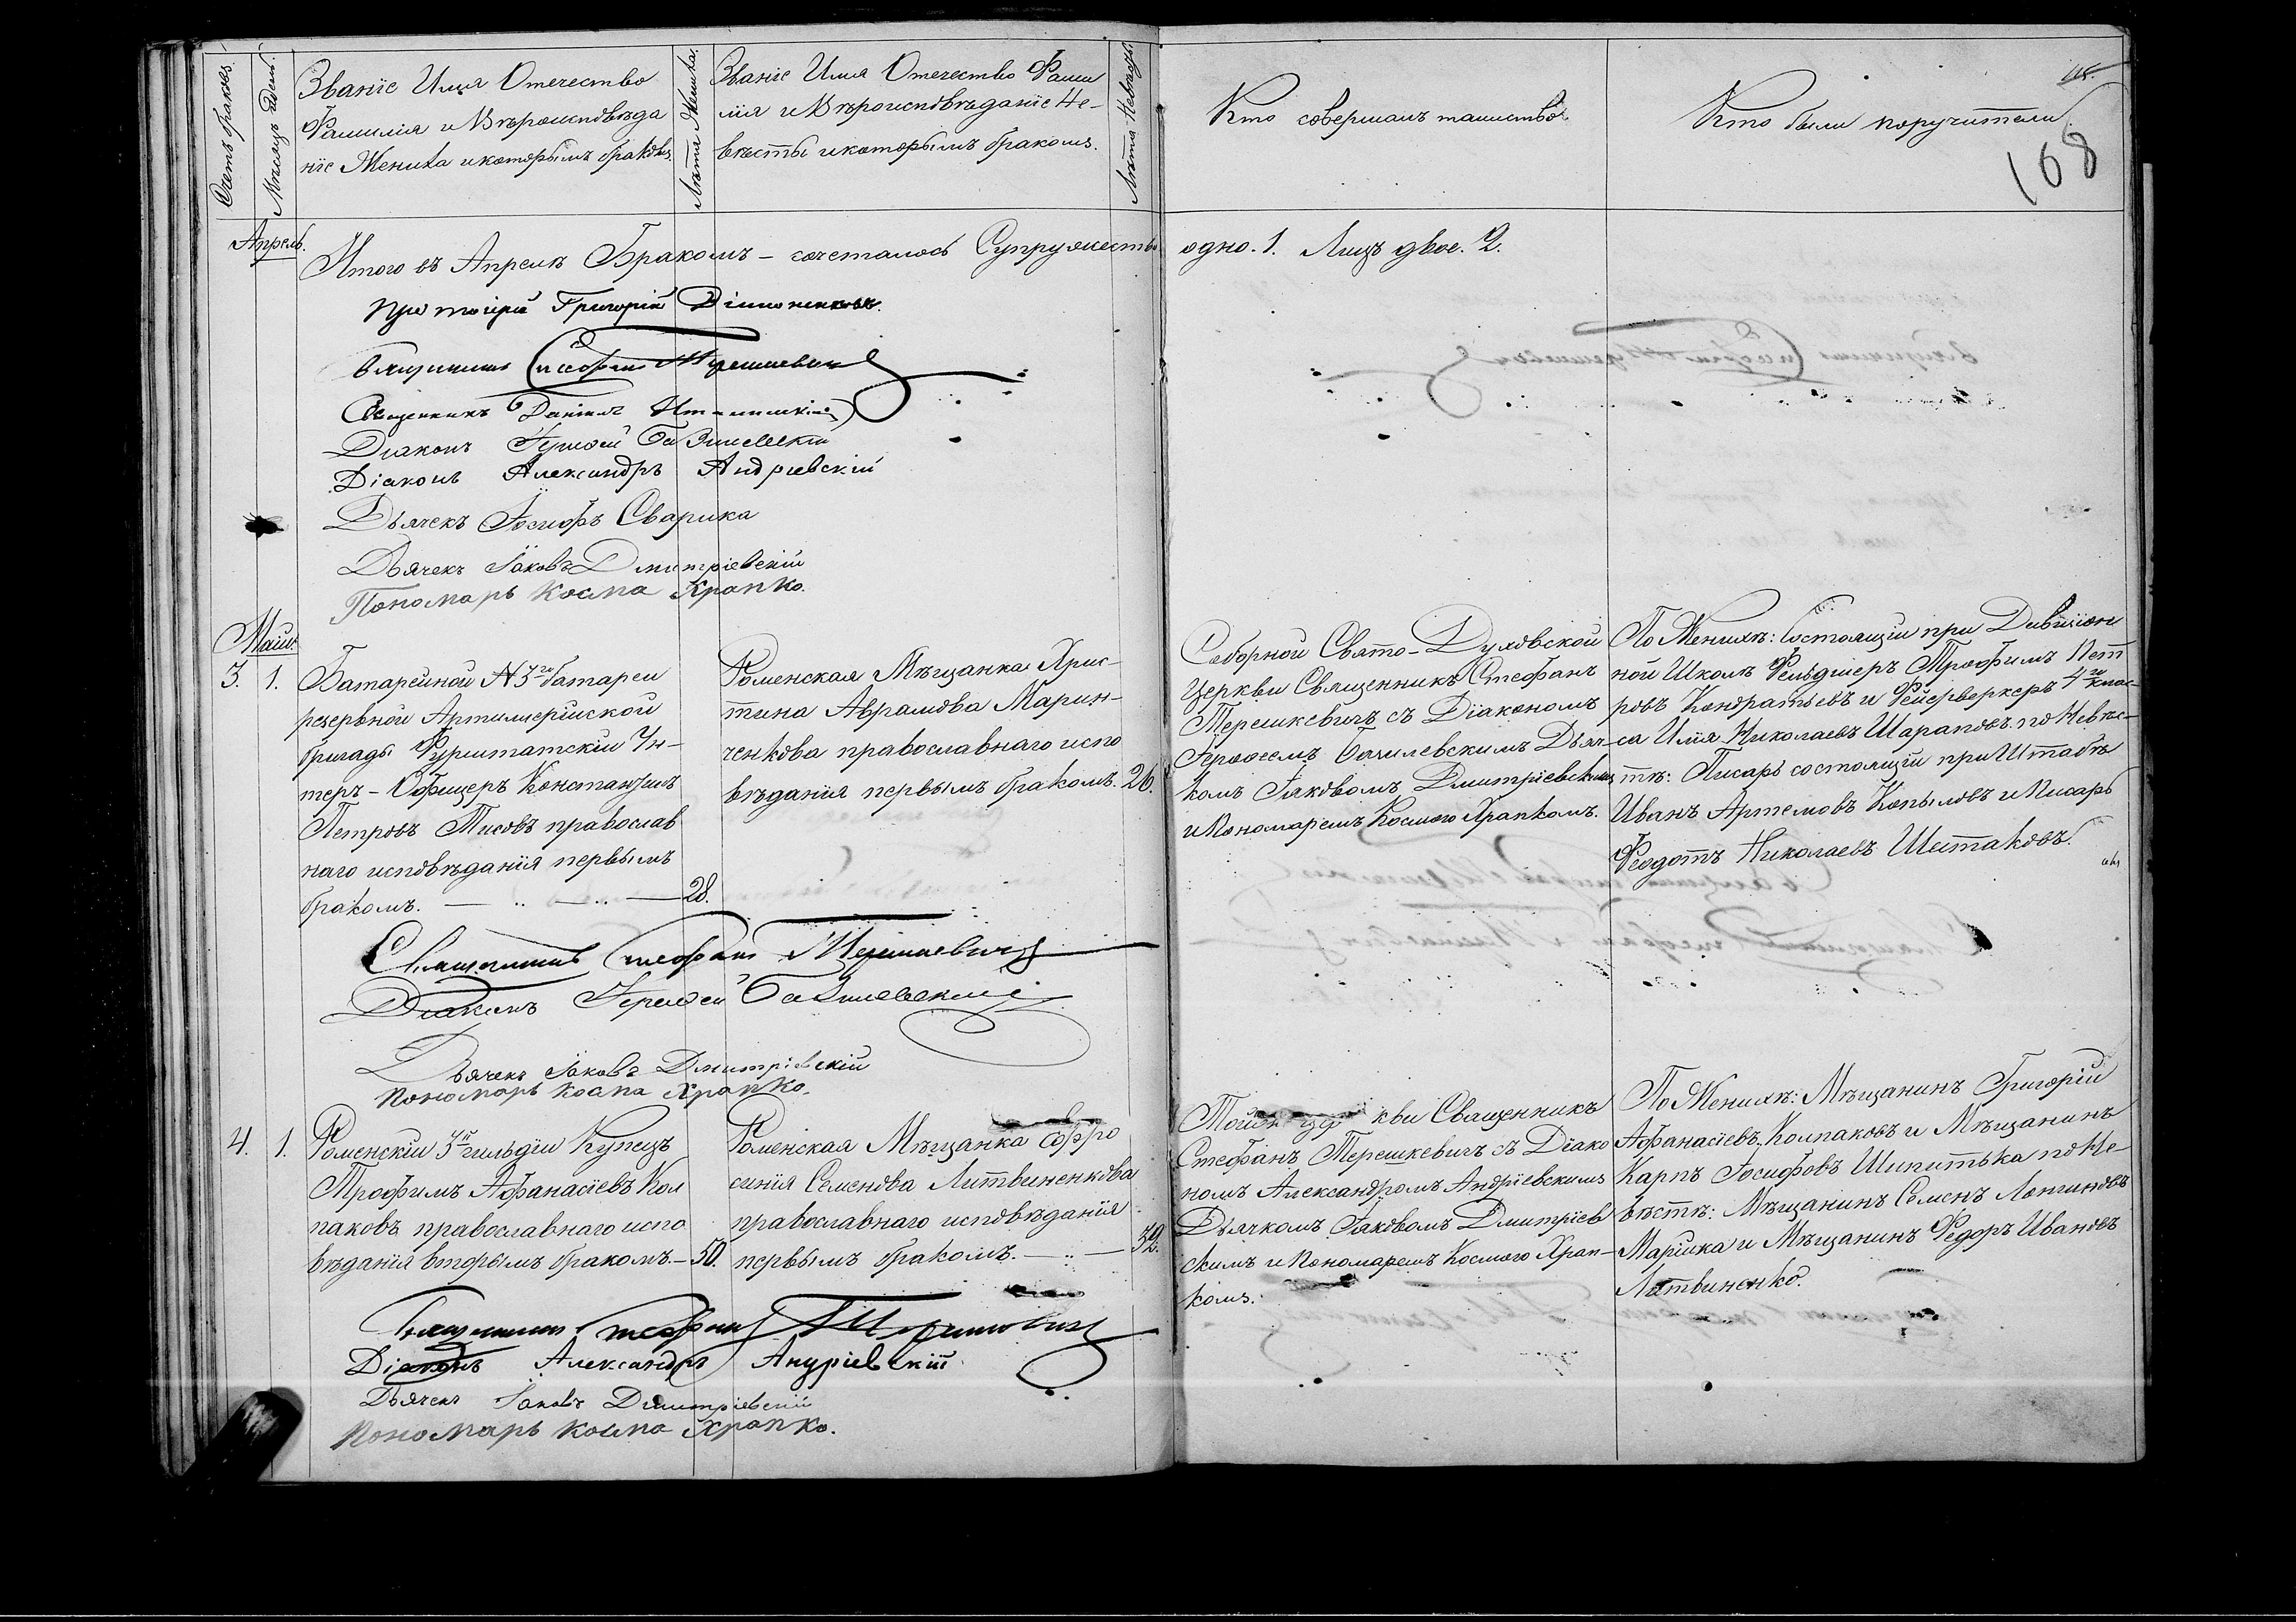 Счетъ браковъ.
Мѣсяцъ и день.
Званіе Имя Отечество
Фамилія и Вѣроисповѣда
ніе Жениха и которымъ бракомъ.
Лѣта Жениха.
Званіе Имя Отечество Фами
лія и Вѣроисповѣданіе Не-
вѣсты и которымъ бракомъ.
Лѣта Невѣсты.
Кто совершалъ таинство.
Кто были поручители.
168
Апрель.
Итого въ Апрелѣ Бракомъ – сочеталось Супружество одно. 1. Лицъ двое. 2.
Протоіерей Григорій
Священникъ Стефанъ Терешкевичъ
Священникъ Даніилъ
Діаконъ Іеро́ѳей Базилевскій
Діаконъ Александръ Андріевскій
Дьячекъ Іосифъ Сварика
Дьячекъ Іаковъ Дмитріевскій
Пономарь Косма Храпко.
Маій.
3. 1.
Батарейной № 3го батареи
резервной Артиллерійской
бригады Фурштатскій Ун-
теръ – Офицеръ Константинъ
Петровъ Тисовъ православ
наго исповѣданія первымъ
бракомъ. — 28.
Роменская Мѣщанка Хрис-
тина Аврамова Марин-
ченкова православнаго испо
вѣданія первымъ бракомъ. 26.
Соборной Свято-Духовской
Церкви Священникъ Стефанъ
Терешкевичъ съ Діакономъ
Іероѳеемъ Базилевскимъ Дьяч-
комъ Іаковомъ Дмитріевскимъ
и Пономаремъ Космою Храпкомъ.
По Женихѣ: Состоящій при Дивизіон
ной Школѣ Фельдшеръ Трофимъ Пет
ровъ Кондратьевъ и Фейерверкеръ 4го клас-
са Илія Николаевъ Шараповъ. по Невѣс-
тѣ: Писарь состоящій при Штабѣ
Иванъ Артемовъ Копыловъ и Писарь
Феодотъ Николаевъ Шестаковъ.
Священникъ Стефанъ Терешкевичъ
Діаконъ Іероѳей Базилевскій
Дьячекъ Іаковъ Дмитріевскій
Пономарь Косма Храпко.
4. 1.
Роменскій 3й гильдіи Купецъ
Трофимъ Афанасіевъ Кол
паковъ православнаго испо
вѣданія вторымъ бракомъ. – 50.
Роменская Мѣщанка Ефро
синія Семенова Литвиненкова
православнаго исповѣданія
первымъ бракомъ. — 32.
Той Церкви Священникъ
Стефанъ Терешкевичъ съ Діако
номъ Александромъ Андріевскимъ
Дьячкомъ Іаковомъ Дмитріев
скимъ и Пономаремъ Космою Храп-
комъ.
По Женихѣ: Мѣщанинъ Григорій
Афанасіевъ Колпаковъ и Мѣщанинъ
Карпъ Іосифовъ Шипитька по Не-
вѣстѣ: Мѣщанинъ Семенъ Лонгиновъ
Марішка и Мѣщанинъ Федоръ Ивановъ
Литвиненко.
Священникъ Стефанъ Терешкевичъ
Діаконъ Александръ Андріевскій
Дьячекъ Іаковъ Дмитріевскій
Пономарь Косма Храпко.